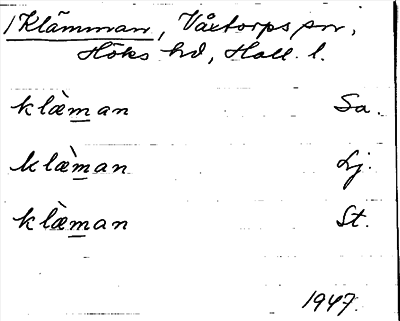 /Klämman, Våxtorps sn,
Höks hd, Hall. l.
klæ̀m̲an Sa.
klæ̀m̲an Lj.
klæ̀m̲an St.
1947.